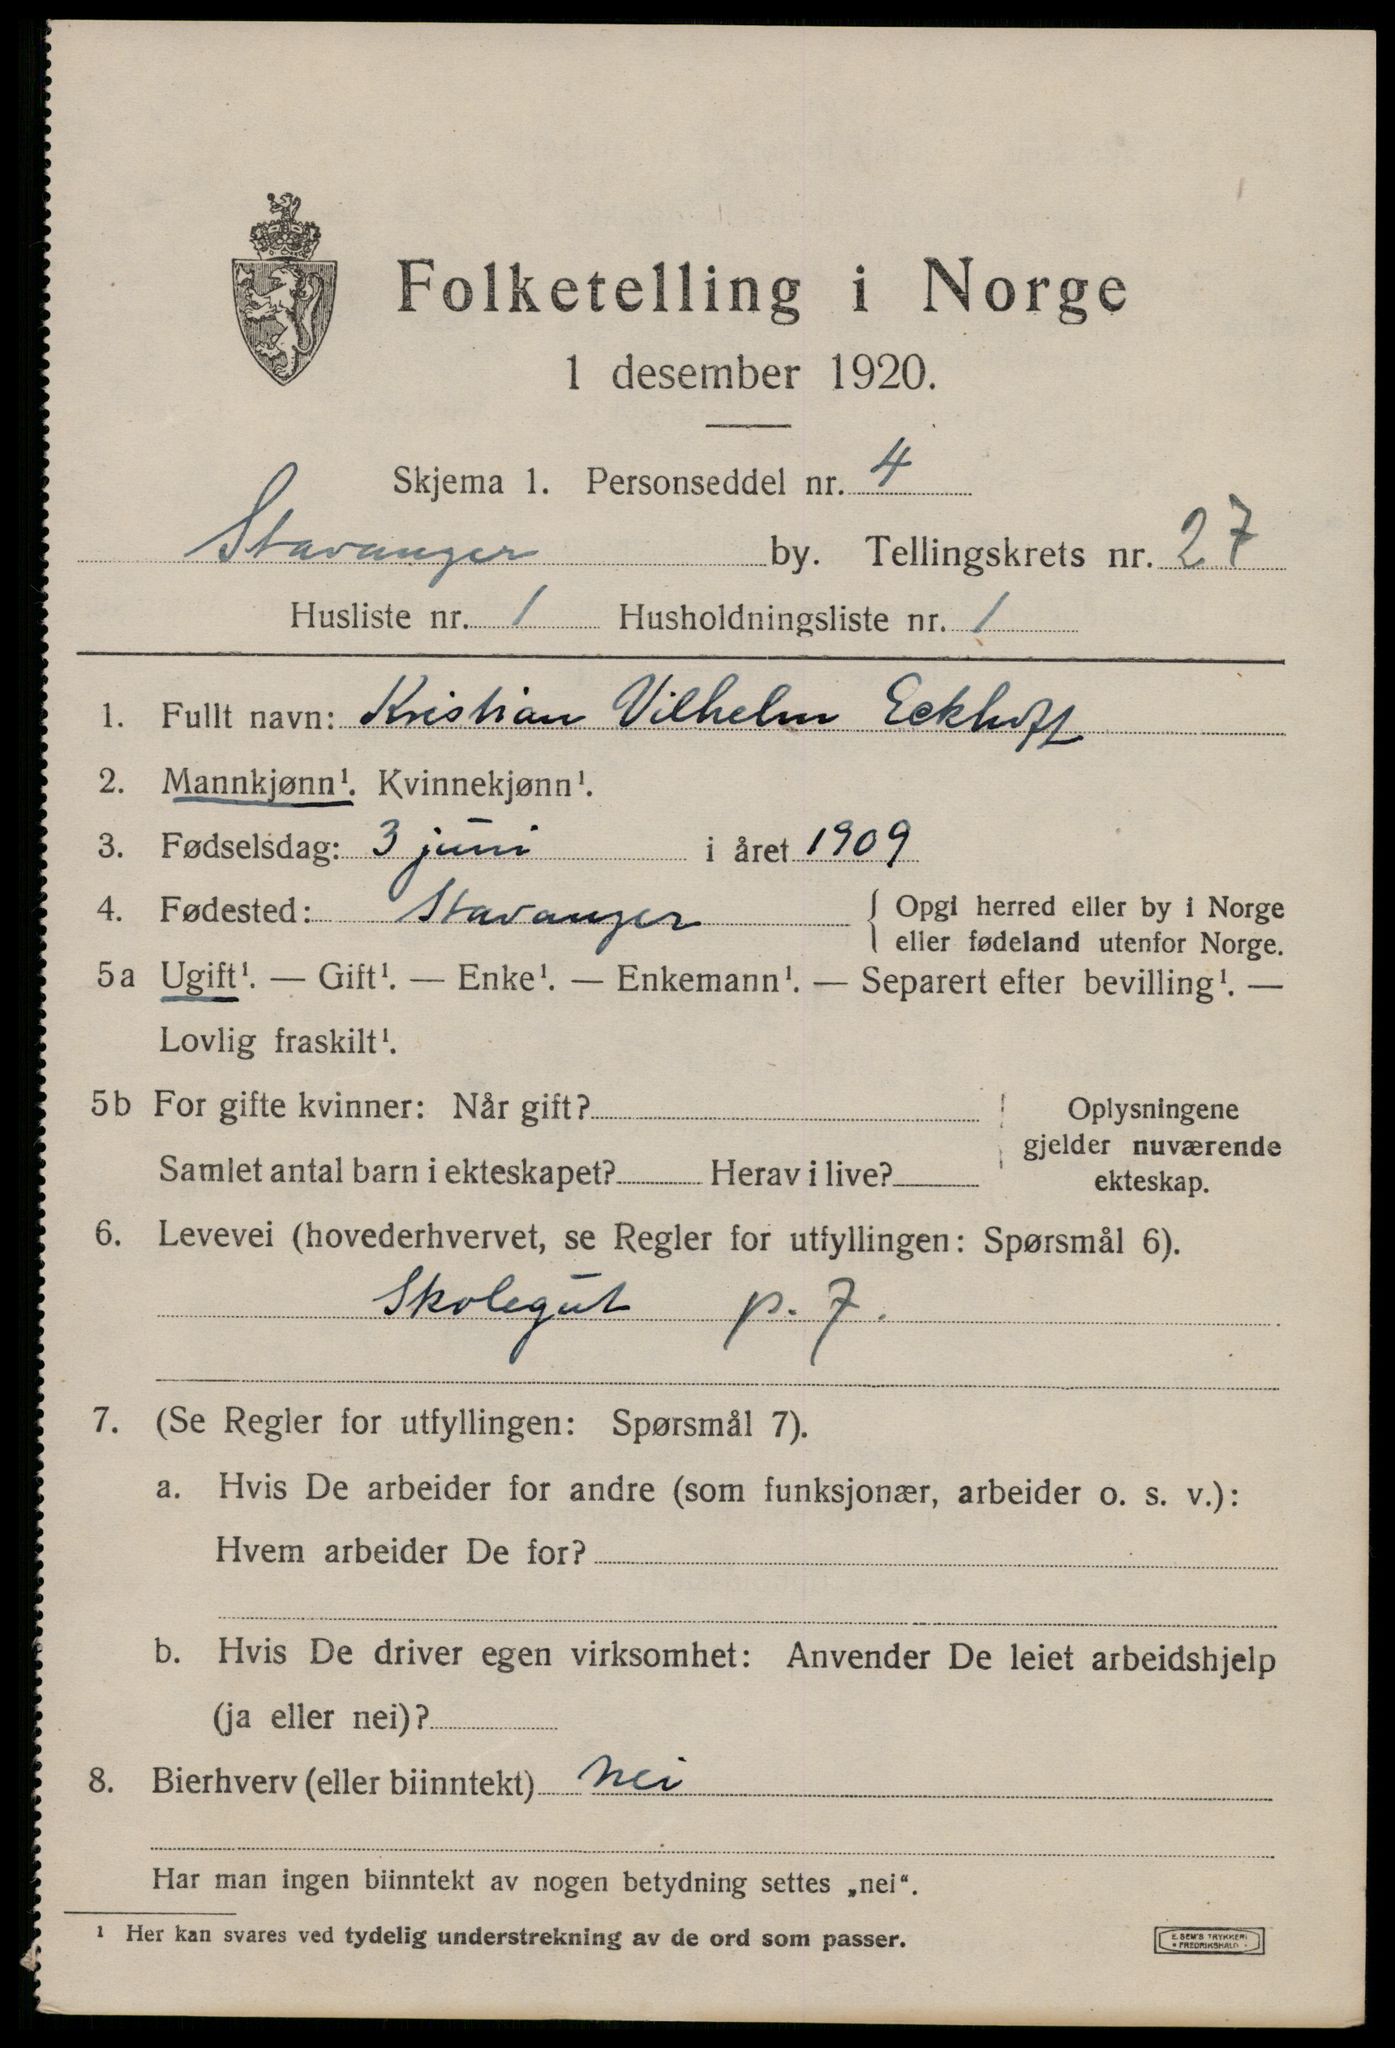 Folketelling i Norge
1 desember 1920.
Skjema 1. Personseddel nr. 4
Stavanger by. Tellingskrets nr. 27
Husliste nr. 1 Husholdningsliste nr. 1
1. Fullt navn: Kristian Vilhelm Eckhoff
2. Mannkjønn¹. Kvinnekjønn¹.
3. Fødselsdag: 3 juni i året 1909
4. Fødested: Stavanger { Opgi herred eller by i Norge
eller fødeland utenfor Norge.
5a Ugift¹. — Gift¹. — Enke¹. — Enkemann¹. — Separert efter bevilling¹. —
Lovlig fraskilt¹.
5b For gifte kvinner: Når gift? Oplysningene
gjelder nuværende
Samlet antal barn i ekteskapet? Herav i live?
ekteskap.
6. Levevei (hovederhvervet, se Regler for utfyllingen: Spørsmål 6).
Skolegut p. 7.
7. (Se Regler for utfyllingen: Spørsmål 7).
a. Hvis De arbeider for andre (som funksjonær, arbeider o. s. v.):
Hvem arbeider De for?
b. Hvis De driver egen virksomhet: Anvender De leiet arbeidshjelp
(ja eller nei)?
8. Bierhverv (eller biinntekt) nei
Har man ingen biinntekt av nogen betydning settes „nei“.
¹ Her kan svares ved tydelig understrekning av de ord som passer.
E. SEM'S TRYKKERI
• FREDRIKSHALD •